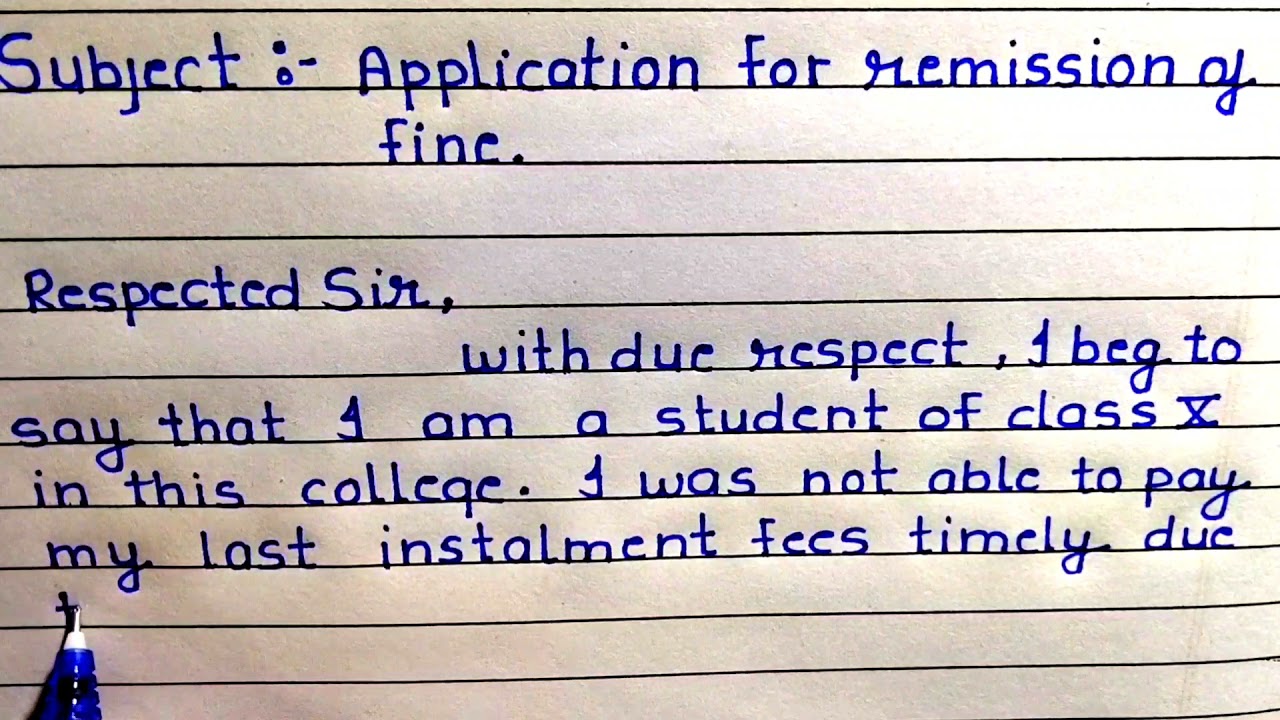 Subject :- Application for remission of
fine.
Respected Sir,
with due respect, I beg to
say that I am a student of class X
in this college. I was not able to pay
my last instalment fees timely due
t